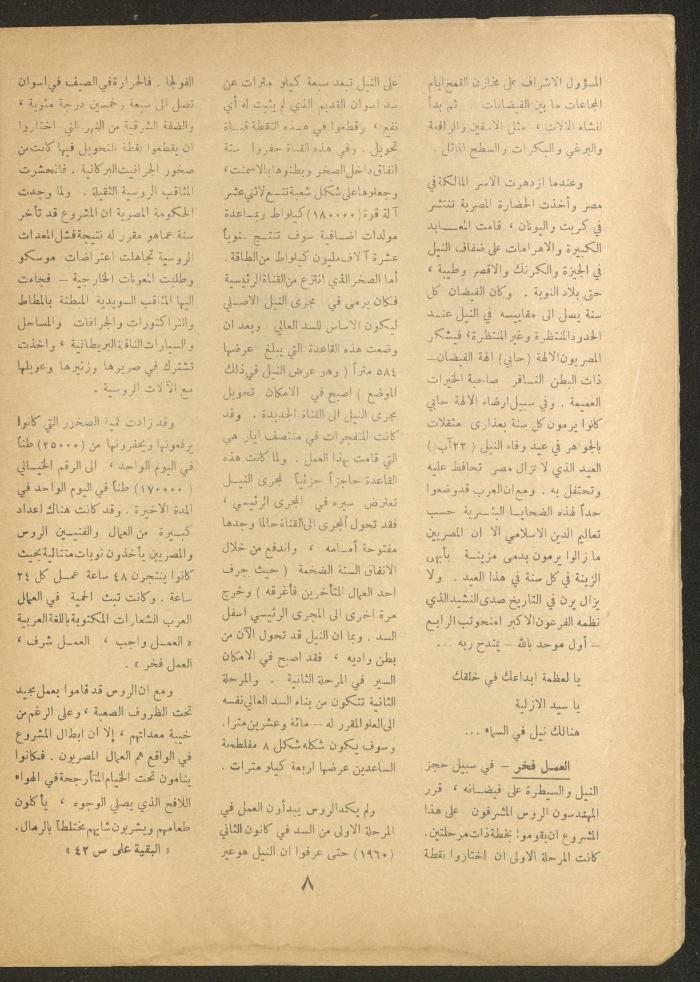 المسؤول الاشراف على مخازن القمح ايام
المجاعات ما بين الفيضانات ثم بدأ
انشاء الالات ، مثل الاسفين والرافعة
والبرغي والبكرات والسطح المائل .
وعندما ازدهرت الاسر المالكة في
مصر وأخذت الحضارة المصرية تنتشر
في كريت واليونان ، قامت المعـابد
الكبيرة والاهرامات على ضفاف النيل
في الجيزة والكرنك والاقصر وطيبة ،
حتى بلاد النوبة . وكان الفيضان كل
سنة يصل الى مقاييسه في النيل عنـد
الحدود المنتظرة وغير المنتظرة، فيشكر
المصريون الالهة (حابي) الهة الفيضان—
ذات البطن النـافر صاحبة الخيرات
العميمة . وفي سبيل ارضاء الالهة حابي
كانوا يرمون كل سنة بعذارى مثقلات
بالجواهر في عيد وفاء النيل ( ٢٢ آب )
العيد الذي لا تزال مصر تحافظ عليه
وتحتفل به . ومع ان العرب قد وضعوا
حداً لهذه الضحايـا البشـرية حسب
تعاليم الدين الاسلامي الا ان المصريين
ما زالوا يرمون بدمى مزينـة بأبهى
الزينة في كل سنة في هذا العيد . ولا
يزال يرن في التاريخ صدى النشيد الذي
نظمه الفرعون الاكبر امنحوتب الرابـع
– أول موحد بالله – يمتدح ربه ...
يا لعظمة ابداعك في خلقك
يا سيد الازلية
هنالك نيل في السماء ...
العمـل فخر – في سبيل حجز
النيل والسيطرة على فيضـانه ، قرر
المهندسون الروس المشرفون على هذا
المشروع ان يقوموا بخطة ذات مرحلتين.
كانت المرحلة الاولى ان اختاروا نقطة
على النيل تبعد سبعة كيلو مترات عن
سد اسوان القديم الذي لم يثبت له أي
نفع، وقطعوا في هـذه النقطة قنـاة
تحويل . وفي هذه القناة حفروا ستة
انفاق داخل الصخر وبطنوها بالاسمنت،
وجعلوها على شكل شعبة تتسع لاثني عشر
آلة قوة (١٨٠٠٠٠) كيلواط وبمساعدة
مولدات اضـافية سوف تنتـج سنوياً
عشرة آلاف مليون كيلواط من الطاقة .
أما الصخر الذي انتزع من القناة الرئيسية
فكان يرمى في مجرى النيل الاصـلي
ليكون الاساس للسد العالي وبعد ان
وضعت هذه القاعدة التي يبلغ عرضها
٥٨٤ متراً ( وهو عرض النيل في ذلك
الموضع ) اصبح في الامكان تحويل
مجرى النيل الى القناة الجديدة . وقد
كانت المتفجرات في منتصف ايار هي
التي قامت بهذا العمل . ولما كانت هذه
القاعدة حاجزاً جزئياً لمجرى النيـل
تعترض سيره في المجرى الرئيسي ،
فقد تحول المجرى الى القناة حالما وجدها
مفتوحة أمـامه ، واندفع من خلال
الانفاق الستة الضخمة ( حيث جرف
احد العمال المتأخرين فأغرقه ) وخرج
مرة اخرى الى المجرى الرئيسي اسفل
السد . وبما ان النيل قد تحول الآن من
بطن واديه ، فقد اصبح في الامكان
السير في المرحلة الثانية . والمرحلة
الثانية تتكون من بناء السد العالي نفسه
الى العلو المقرر له – مائة وعشرين مترا.
وسوف يكون شكله شكل ٨ مفلطحة
الساعدين عرضها اربعة كيلو مترات .
ولم يكد الروس يبدأون العمل في
المرحلة الاولى من السد في كانون الثاني
(١٩٦٠) حتى عرفوا ان النيل هو غير
الفولجا . فالحرارة في الصيف في اسوان
تصل الى سبعة وخمسين درجة مئوية ،
والضفة الشرقية من النهر التي اختاروا
ان يقطعوا نقطة التحويل فيها كانت من
صخور الجرانيت البركانية . فانحشرت
المثاقب الروسية الثقيلة . ولما وجدت
الحكومة المصرية ان المشروع قد تأخر
سنة عما هو مقرر له نتيجة فشل المعدات
الروسية تجاهلت اعتراضات موسكو
وطلبت المعونات الخارجية – فجاءت
اليها المثاقب السويدية المبطنة بالمطاط
والتراكتورات والجرافات والمساحل
والسيارات الناقلة البريطانية ، واخذت
تشترك في صريرها وزئيرها وعويلها
مع الآلات الروسية .
وقد زادت كمية الصخور التي كانوا
يرفعونها ويحفرونها من (٢٥٠٠٠) طناً
في اليوم الواحد ، الى الرقم الخيـالي
(١٧٠٠٠٠) طناً في اليوم الواحد في
المدة الاخيرة . وقد كانت هناك اعداد
كبيـرة من العمال والفنيـين الروس
والمصريين يأخذون نوبات متتالية بحيث
كانوا ينتجون ٤٨ ساعة عمـل كل ٢٤
ساعة . وكانت تبث الحمية في العمال
العرب الشعارات المكتوبة باللغة العربية
« العمـل واجب ، العمـل شرف ،
العمل فخر » .
ومع ان الروس قد قاموا بعمل مجيد
تحت الظروف الصعبة ، وعلى الرغم من
خيبة معداتهم ، إلا ان ابطال المشروع
في الواقع هم العمال المصريون . فكانوا
ينامون تحت الخيام المتأرجحة في الهواء
اللافح الذي يصلي الوجوه ، يأكلون
طعامهم ويشربون شايهم مختلطاً بالرمال.
« البقية على ص ٤٢ »
٨